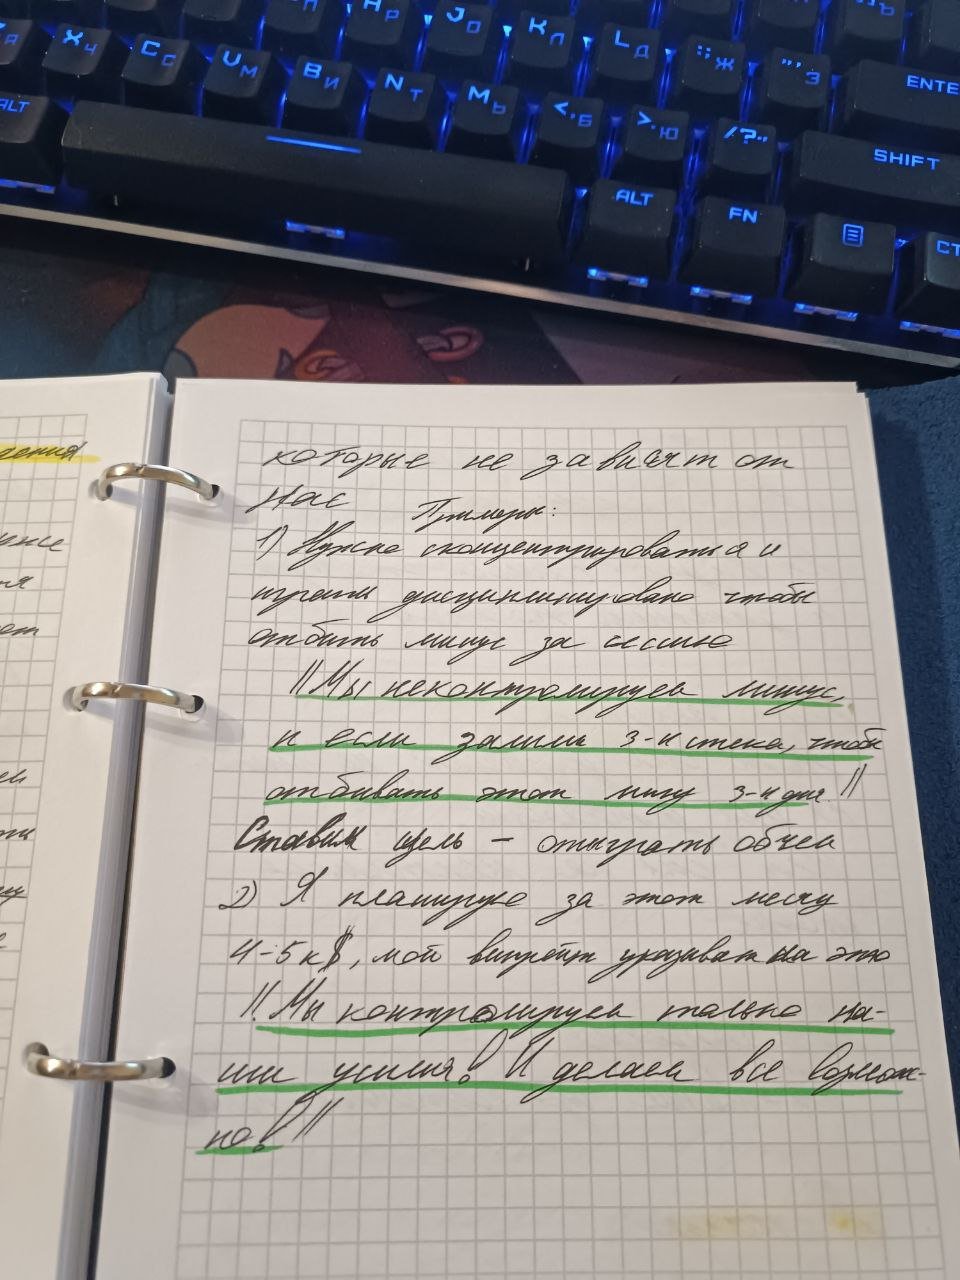 П
Н Р
J О
К Л
L Д
: ; Ж
" ' Э
ENTE
Я
X Ч
C С
V М
B И
N Т
M Ь
< , Б
> . Ю
/ ? . ,
SHIFT
ALT
ALT
FN
CT
дения
которые не зависят от
нас Примеры:
1) Нужно сконцентрироваться и
играть дисциплинировано чтобы
отбить минус за сессию
!! Мы неконтролируем минус,
и если залили 3-и стека, чтобы
отбивать этот могу 3-и дня. !!
Ставим цель – отыграть обчен
2) Я планирую за этот месяц
4-5 к$, мой винрейт указыват на это
!! Мы контролируем только на-
ши усилия! И делаем все возмож-
но! !!